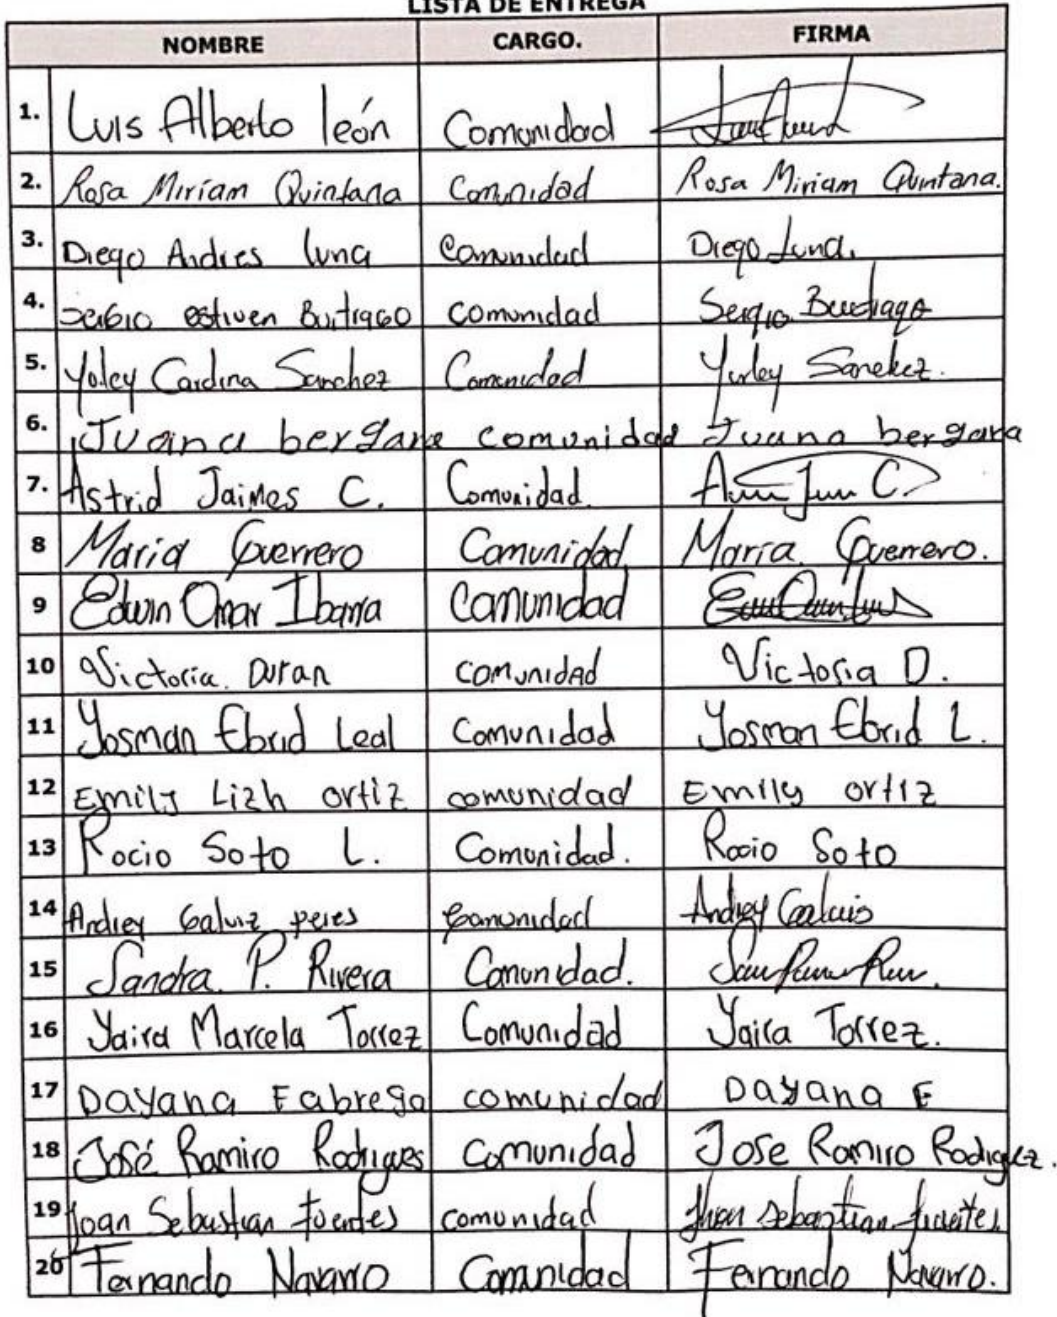 LISTA DE ENTREGA
NOMBRE CARGO. FIRMA
1. Luis Alberto león Comunidad
2. Rosa Miriam Quintana Comunidad Rosa Miriam Quintana.
3. Diego Andres luna Comunidad Diego Luna.
4. Sergio estiven Buitrago comunidad Sergio Buitrago
5. Yuley Carolina Sanchez Comunidad Yurley Sanchez.
6. Juana bergara comunidad Juana bergara
7. Astrid Jaimes C. Comunidad.
8 Maria Guerrero Comunidad Maria. Guerrero.
9 Edwin Omar Ibarra Comunidad
10 Victoria. Duran comunidad Victoria D.
11 Yosman Ebrid Leal Comunidad Yosman Ebrid L.
12 Emily Lizh ortiz comunidad Emily ortiz
13 Rocio Soto L. Comunidad. Rocio Soto
14 Andrey Galviz peres Comunidad Andrey
15 Sandra. P. Rivera Comunidad.
16 Yaira Marcela Torrez Comunidad Yaira Torrez.
17 Dayana Fabrega comunidad Dayana F
18 José Ramiro Rodrigues Comunidad Jose Ramiro Rodriguez.
19 Joan Sebastian fuentes comunidad Jhoan sebastian fuentes
20 Fernando Navarro Comunidad Fernando Navarro.